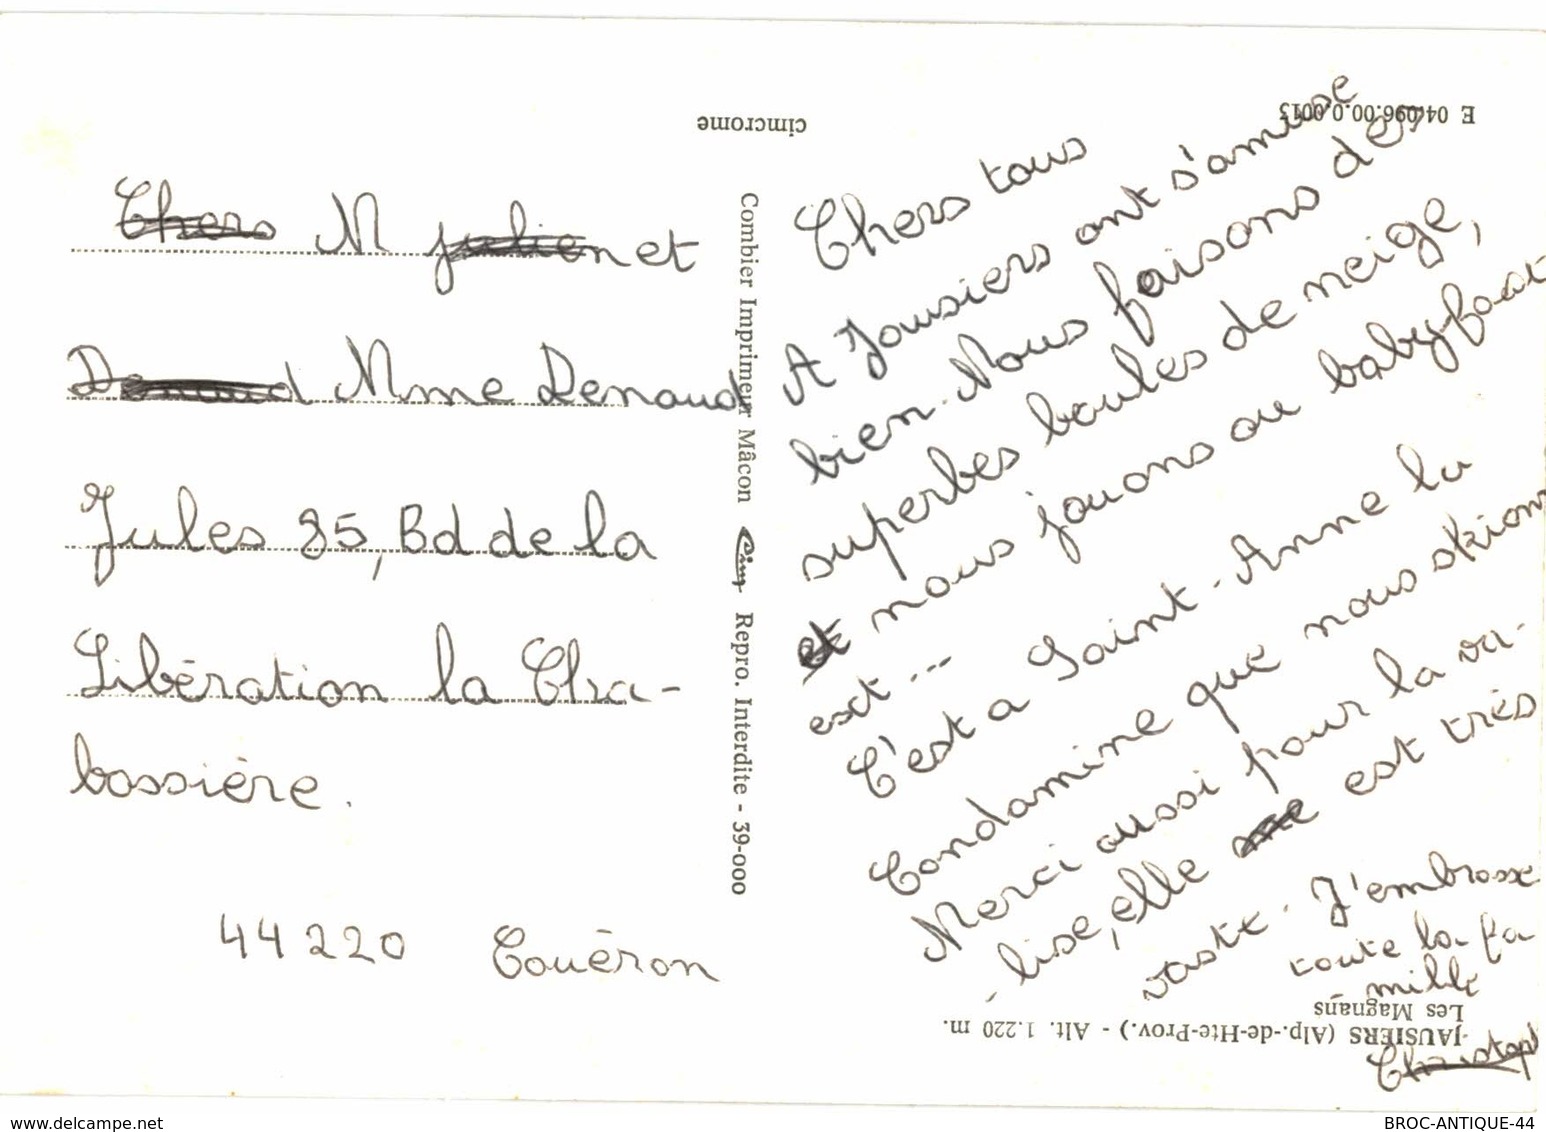 cimcrome
E 04.096.00.0.0013
Chers M julien et
D Mme Denaud
Jules 85, Bd de la
Libération la Cha-
bossière.
44220 Couëron
Combier Imprimeur Mâcon Cim Repro. Interdite - 39-000
Chers tous
A Jausiers ont s'amuse
bien. Nous faisons des
superbes boules de neige,
et nous jouons au baby-foot
ext ...
C'est a Saint-Anne la
Condamine que nous skions
Merci aussi pour la va-
-lise, elle est très
vaste. J'embrasse
toute la fa
mille
Christoph
JAUSIERS (Alp.-de-Hte-Prov.) - Alt. 1.220 m.
Les Magnans
www.delcampe.net
BROC-ANTIQUE-44